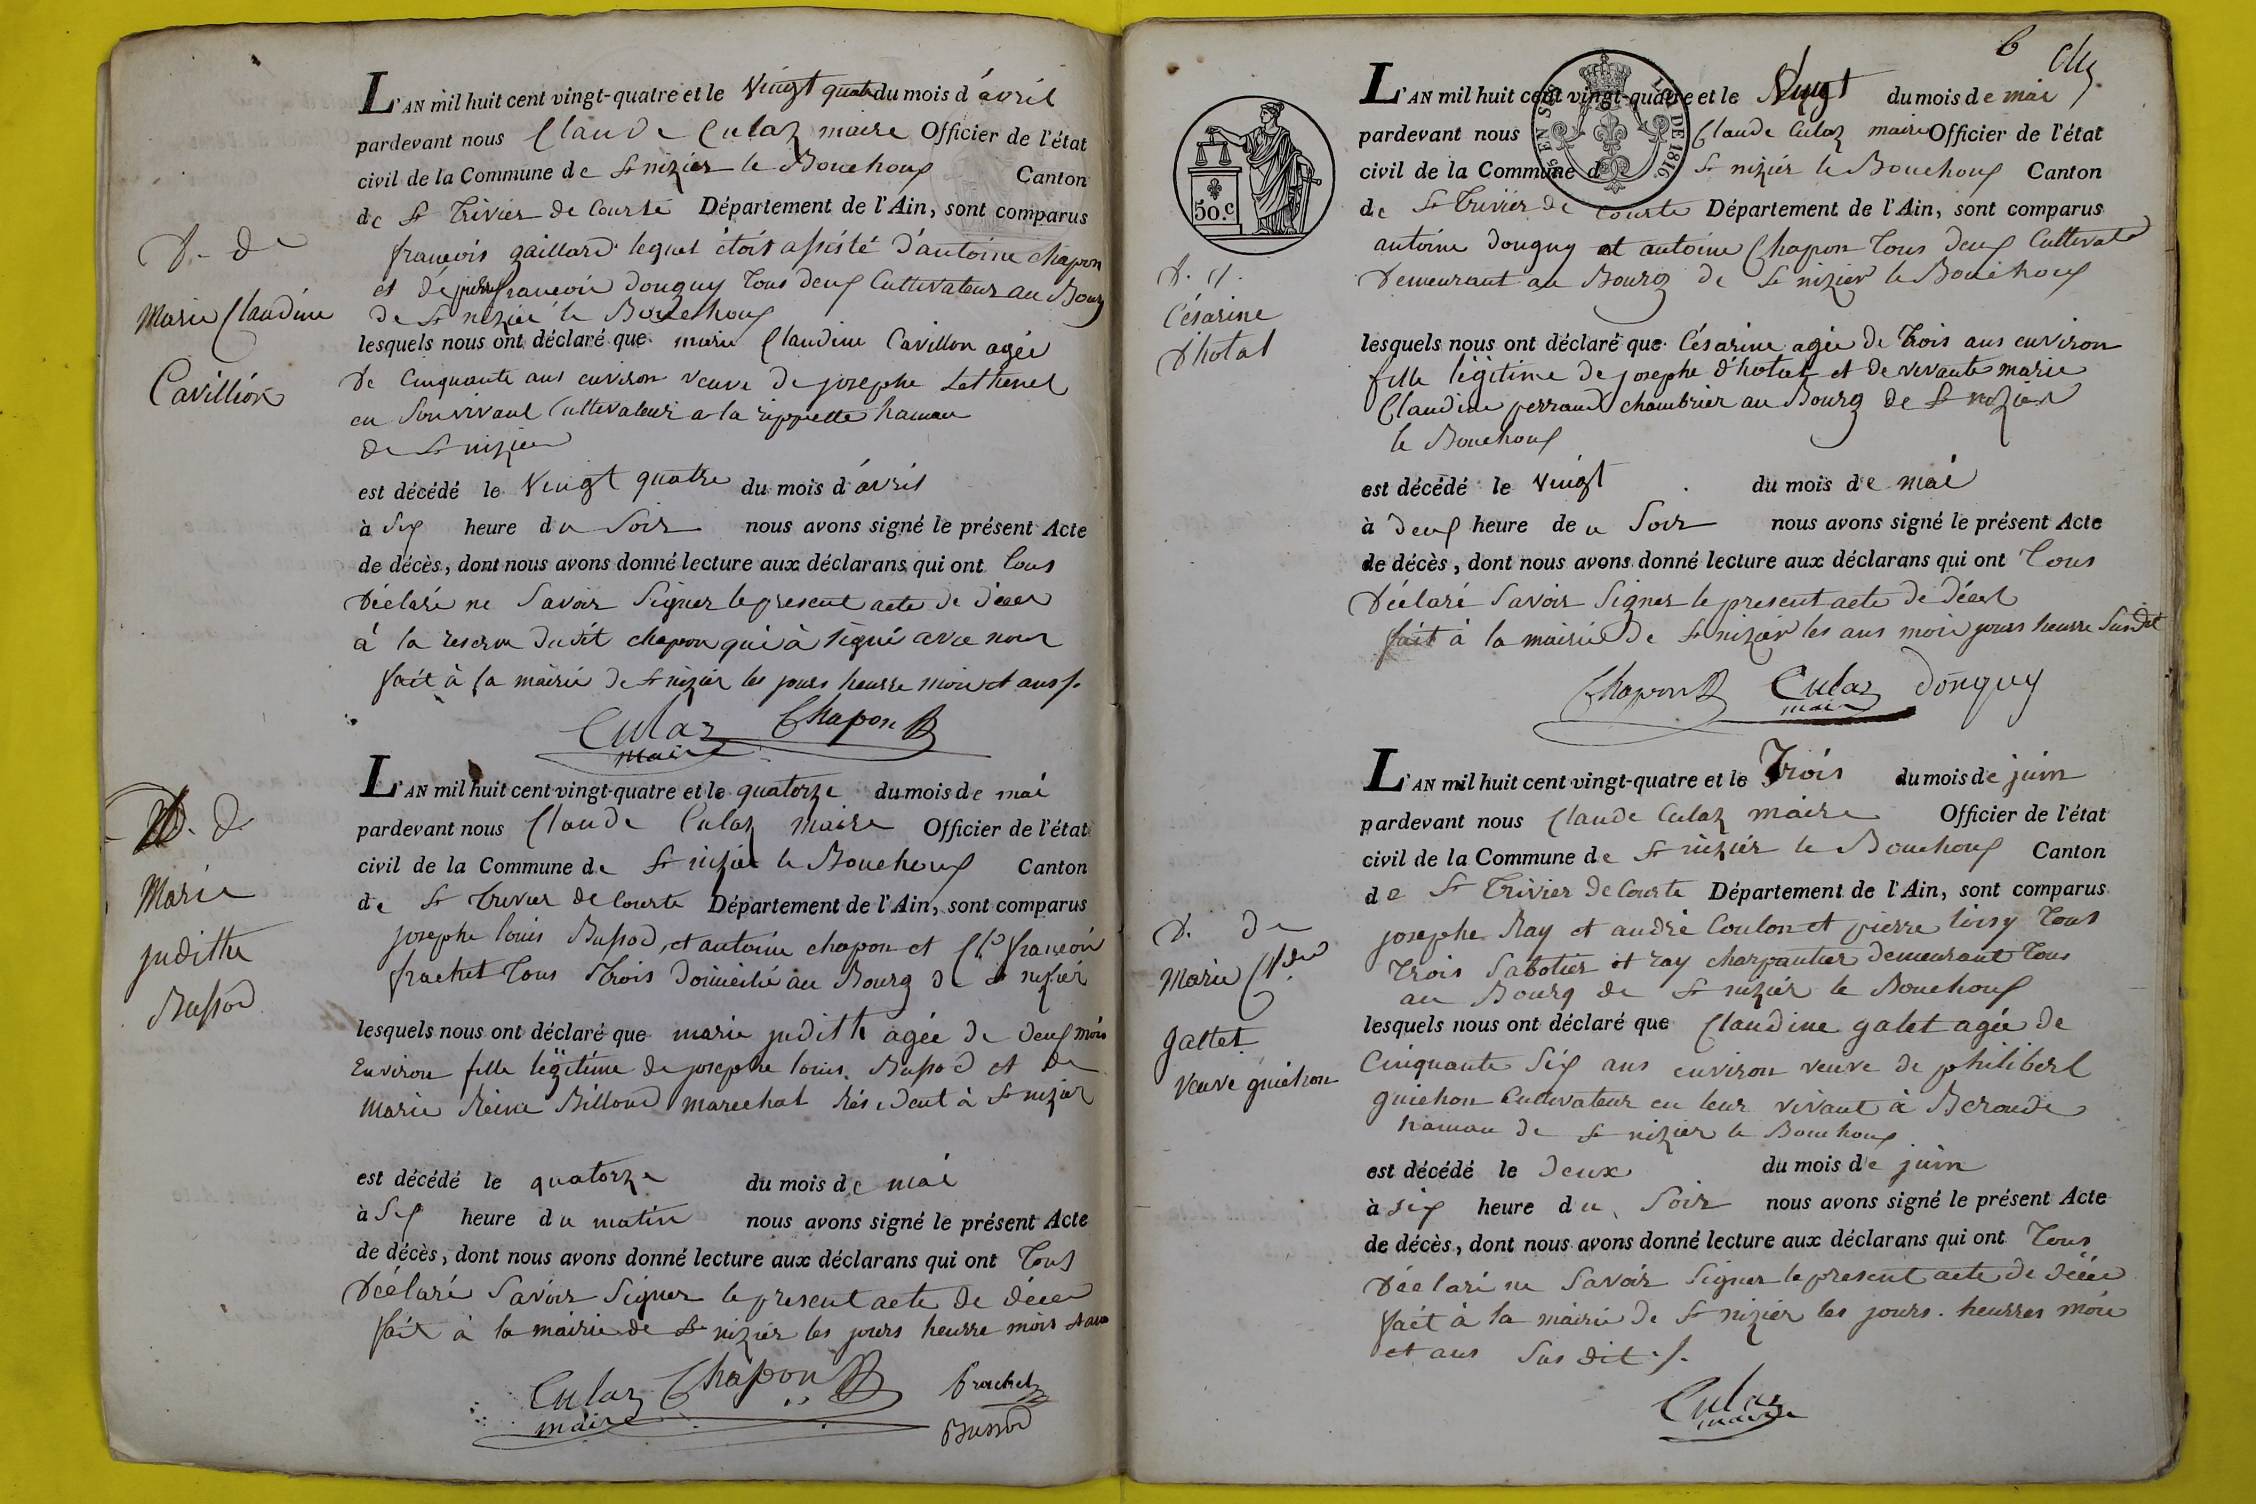 D. de
Marie Claudine
Cavillión
L'AN mil huit cent vingt-quatre et le vingt quatre du mois d'avril
pardevant nous Claude Culaz maire Officier de l'état
civil de la Commune de St nizier le Bouchoux Canton
de St Trivier de Courte Département de l'Ain, sont comparus
francois gaillard lequel étoit assisté d'antoine chapon
et de pierre francois donguy tous deux Cultivateur au Bourg
de St nizier le Bouchoux
lesquels nous ont déclaré que marie Claudine Cavillon agée
De Cinquante ans environ veuve de josephe
en Son vivant Cultivateur a la rippette hameau
de St nizier
est décédé le vingt quatre du mois d'avril
à Six heure du Soir nous avons signé le présent Acte
de décès, dont nous avons donné lecture aux déclarans qui ont tous
Déclaré ne Savoir Signer le present acte de décer
á la reserve dudit chapon qui à signé avec nous
fait à la mairie de St nizier les jours heurre mois et ans
Culaz Chapon
maire
D. d
Marie
judithe
Bussod
L'AN mil huit cent vingt-quatre et le quatorze du mois de mai
pardevant nous Claude Culaz maire Officier de l'état
civil de la Commune de St nizier le Bouchoux Canton
de St Trivier de Courte Département de l'Ain, sont comparus
josephe louis Bussod et antoine chapon et francois
frachet tous trois domicilié au Bourg de St nizier
lesquels nous ont déclaré que marie judith agée de deux mois
Environ fille légitime de josephe louis Bussod et de
Marie Reine Billoud marechal Résident à St nizier
est décédé le quatorze du mois de mai
à Six heure du matin nous avons signé le présent Acte
de décès, dont nous avons donné lecture aux déclarans qui ont tous
Déclaré Savoir Signer le present acte de décer
fait à la mairie de St nizier les jours heurre mois et ans
Culaz Chapon frachet
maire Bussod
6
50.c
EN SUS
L. DE 1816.
D. d.
Césarine
D'hotal
L'AN mil huit cent vingt-quatre et le Vingt du mois de mai
pardevant nous Claude Culaz maire Officier de l'état
civil de la Commune d St nizier le Bouchoux Canton
de St Trivier de Courte Département de l'Ain, sont comparus
antoine donguy et antoine Chapon tous deux Cultivate
Demeurant au Bourg de St nizier le Bouchoux
lesquels nous ont déclaré que Césarine agée de trois ans environ
fille légitime de josephe d'hotal et de vivante marie
Claudine perraud chambrier au Bourg de St nizier
le Bouchoux
est décédé le vingt du mois de mai
à deux heure de u Soir nous avons signé le présent Acte
de décès, dont nous avons donné lecture aux déclarans qui ont tous
Déclaré Savoir Signer le present acte de décest
fait à la mairie de St nizier les ans mois jours heurre Susdit
Chapon Culaz donguy
maire
D. de
Marie Cldine
gattet
veuve guichon
L'AN mil huit cent vingt-quatre et le Trois du mois de juin
pardevant nous Claude Culaz maire Officier de l'état
civil de la Commune de St nizier le Bouchoux Canton
de St Trivier de Courte Département de l'Ain, sont comparus
josephe Ray et andré Coulon et pierre loisy tous
trois Sabotier et ray charpantier demeurant tous
au Bourg de St nizier le Bouchoux
lesquels nous ont déclaré que Claudine galet agée de
Cinquante Six ans environ veuve de philibert
guichon Cultivateur en leur vivant à Beroude
hamau de St nizier le Bouchoux
est décédé le deux du mois de juin
à six heure du Soir nous avons signé le présent Acte
de décès, dont nous avons donné lecture aux déclarans qui ont tous
Déclaré ne Savoir Signer le present acte de décée
fait à la mairie de St nizier les jours heurres mois
et ans Sus dit
Culaz
maire